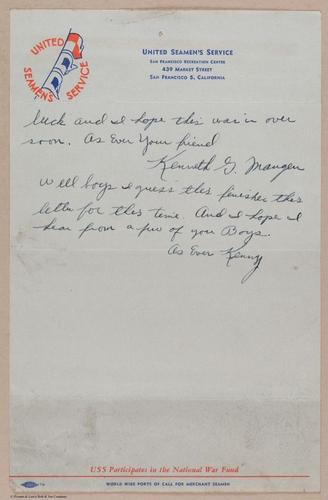 UNITED SEAMEN'S SERVICE
UNITED SEAMEN'S SERVICE
SAN FRANCISCO RECREATION CENTER
439 MARKET STREET
SAN FRANCISCO 5, CALIFORNIA
luck and I hope this war in over
soon. As Ever Your friend
Kenneth G. Mangen
Well boys I guess this finishes this
letter for this time. And I hope I
hear from a few of you Boys.
As Ever Kenny
USS Participates in the National War Fund
WORLD WIDE PORTS OF CALL FOR MERCHANT SEAMEN